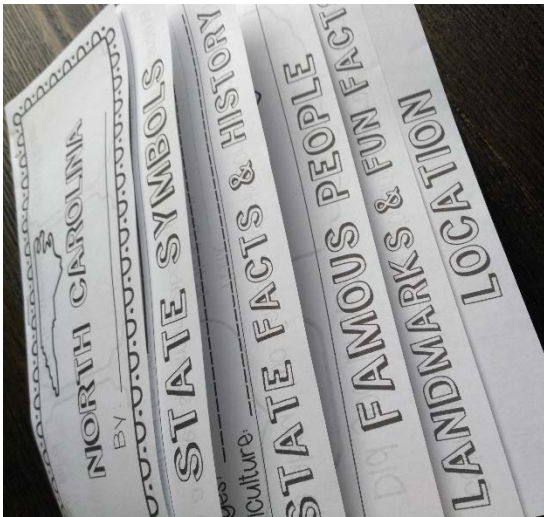 NORTH CAROLINA
BY:
STATE SYMBOLS
STATE FACTS & HISTORY
FAMOUS PEOPLE
LANDMARKS & FUN FACT
LOCATION